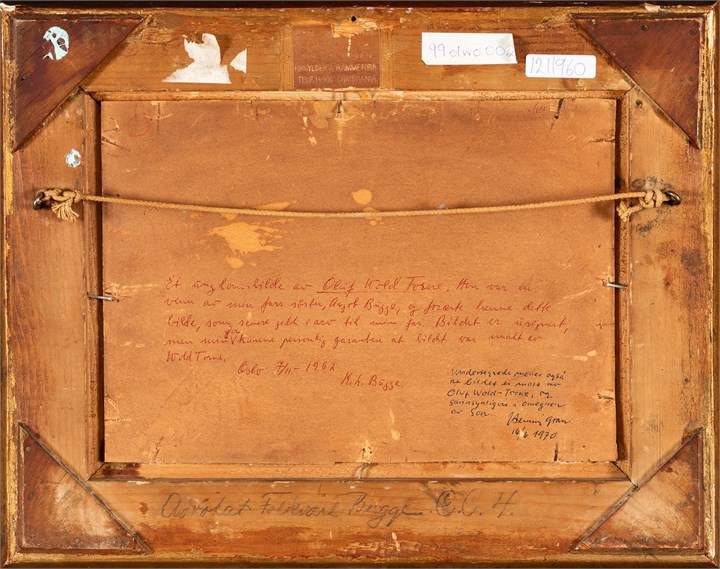 99 olwo 002
1211960
Et ungdomsbilde av Oluf Wold Torne. Han var en
venn av min fars søster, Augot Bugge, og forærte henne dette
bilde, som senere gikk i arv til min far. Bildet er usignert,
men min far kunne personlig garantere at bildet var malt av
Wold Torne.
Oslo 7/11 - 1962
H. h. Bugge.
Undertegnede mener også
at bildet er malt av
Oluf Wold-Torne, og
sannsynligvis i omegnen
av Son.
Henning Gran
1970
Advokat Bugge. 4.